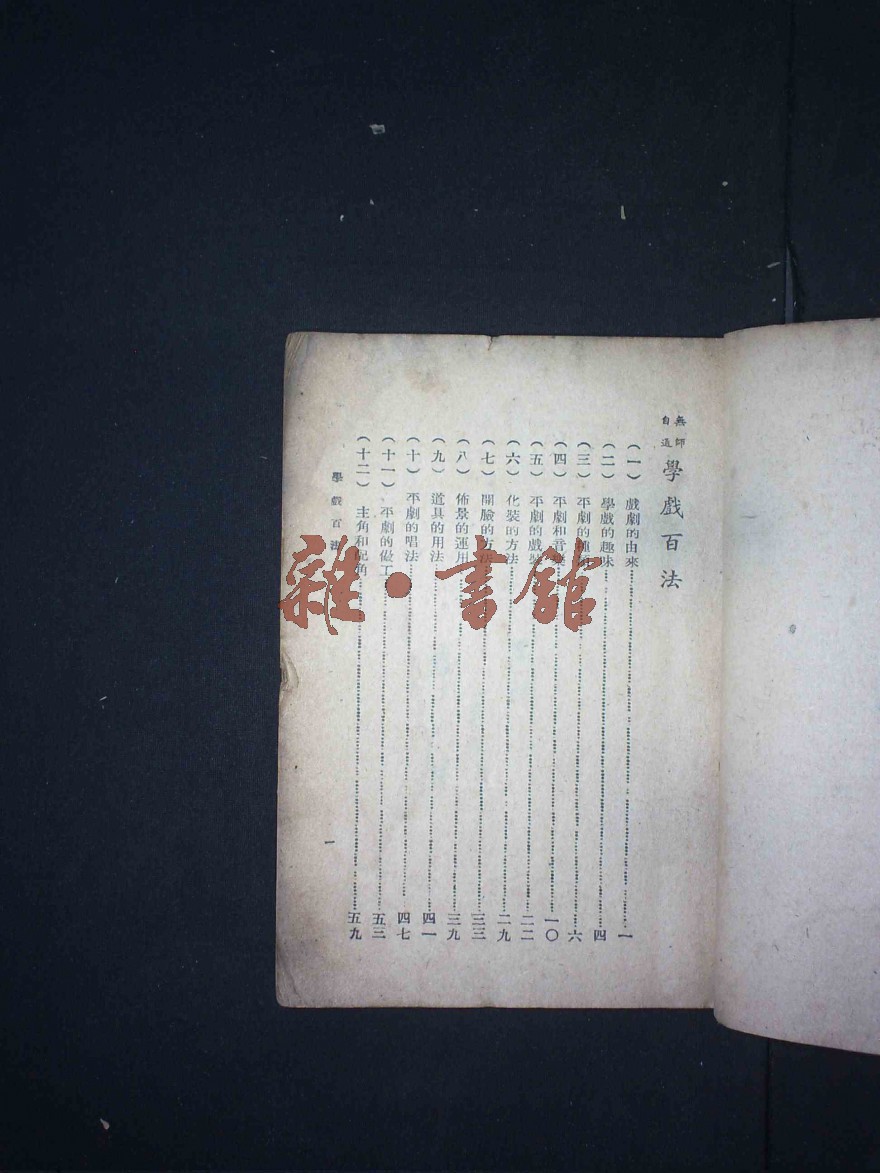 無師
自通
學戲百法
(一) 戲劇的由來 一
(二) 學戲的趣味 四
(三) 平劇的 六
(四) 平劇和音樂 一〇
(五) 平劇的戲裝 二二
(六) 化裝的方法 二九
(七) 開臉的方法 三三
(八) 佈景的運用 三九
(九) 道具的用法 四一
(十) 平劇的唱法 四七
(十一) 平劇的做工 五三
(十二) 主角和配角 五九
學戲百法
一
雜·書館